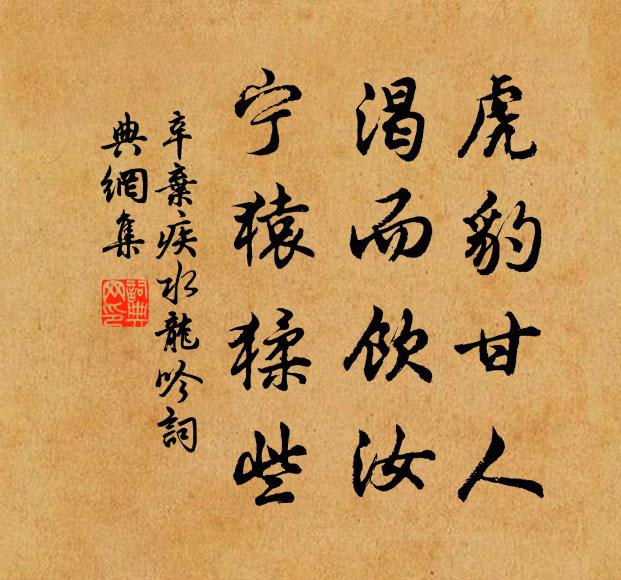 虎豹甘人
渴而饮汝
宁猿猱些
辛棄疾水龍吟詞
典網集
詞典
网印